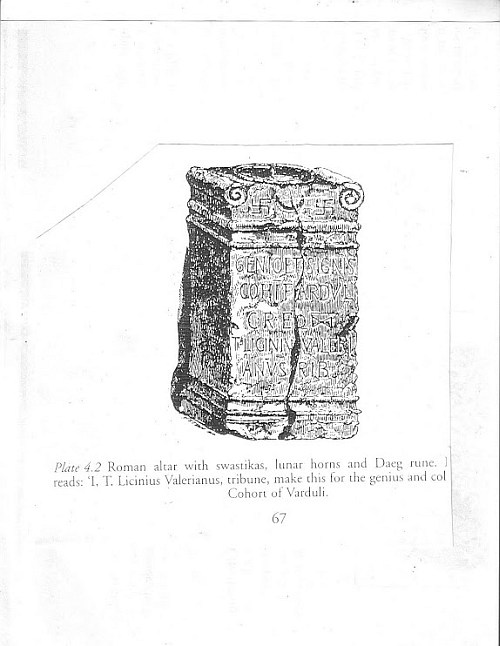 GENIO ET SIGNIS
COH I FARDVL
CR EO
T LICINIV VALERI
ANVS RIB
Plate 4.2 Roman altar with swastikas, lunar horns and Daeg rune.
reads: 'I. T. Licinius Valerianus, tribune, make this for the genius and col
Cohort of Varduli.
67